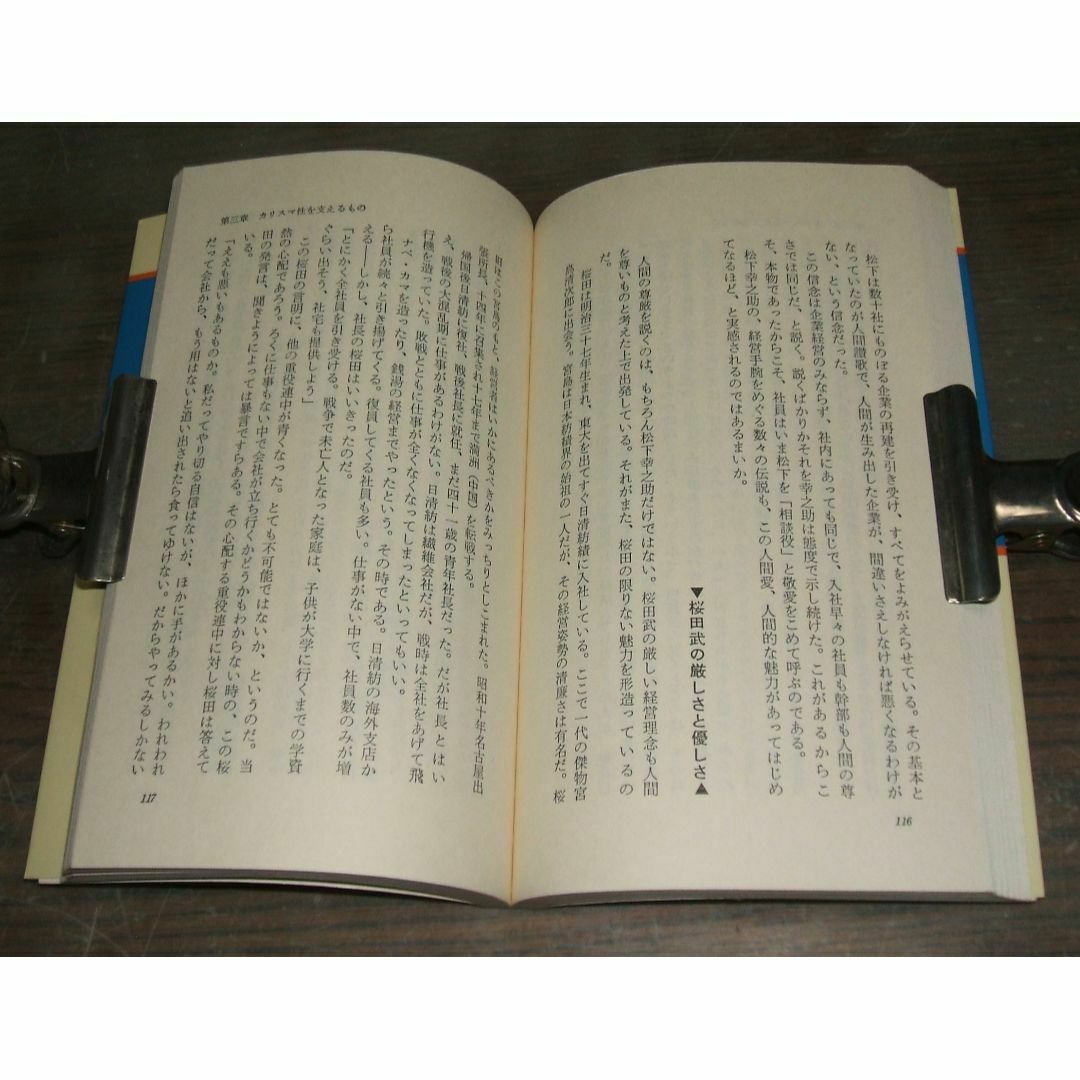 松下は数十社にものぼる企業の再建を引き受け、すべてをよみがえらせている。その基本と
なっていたのが人間讃歌で、人間が生み出した企業が、間違いさえしなければ悪くなるわけが
ない、という信念だった。
この信念は企業経営のみならず、社内にあっても同じで、入社早々の社員も幹部も人間の尊
さでは同じだ、と説く。説くばかりかそれを幸之助は態度で示し続けた。これがあるからこ
そ、本物であったからこそ、社員はいま松下を「相談役」と敬愛をこめて呼ぶのである。
松下幸之助の、経営手腕をめぐる数々の伝説も、この人間愛、人間的な魅力があってはじめ
てなるほど、と実感されるのではあるまいか。
▼桜田武の厳しさと優しさ▲
人間の尊厳を説くのは、もちろん松下幸之助だけではない。桜田武の厳しい経営理念も人間
を尊いものと考えた上で出発している。それがまた、桜田の限りない魅力を形造っているの
だ。
桜田は明治三十七年生まれ、東大を出てすぐ日清紡績に入社している。ここで一代の傑物宮
島清次郎に出会う。宮島は日本紡績界の始祖の一人だが、その経営姿勢の清廉さは有名だ。桜
116
第三章 カリスマ性を支えるもの
田はこの宮島のもと、経営者はいかにあるべきかをみっちりとしこまれた。昭和十年名古屋出
張所長、十四年に召集され十七年まで満洲（中国）を転戦する。
帰国後日清紡に復社、戦後社長に就任、まだ四十一歳の青年社長だった。だが社長とはい
え、戦後の大混乱期に仕事があるわけがない。日清紡は繊維会社だが、戦時は全社をあげて飛
行機を造っていた。敗戦とともに仕事が全くなくなってしまったといってもいい。
ナベ・カマを造ったり、銭湯の経営までやったという。その時である。日清紡の海外支店か
ら社員が続々と引き揚げてくる。復員してくる社員も多い。仕事がない中で、社員数のみが増
える――しかし、社長の桜田はいいきったのだ。
「とにかく全社員を引き受ける。戦争で未亡人となった家庭は、子供が大学に行くまでの学資
ぐらい出そう、社宅も提供しよう」
この桜田の言明に、他の重役連中が青くなった。とても不可能ではないか、というのだ。当
然の心配であろう。ろくに仕事もない中で会社が立ち行くかどうかもわからない時の、この桜
田の発言は、聞きようによっては暴言ですらある。その心配する重役連中に対し桜田は答えて
いる。
「ええも悪いもあるものか。私だってやり切る自信はないが、ほかに手があるかい。われわれ
だって会社から、もう用はないと追い出されたら食ってゆけない。だからやってみるしかない
117